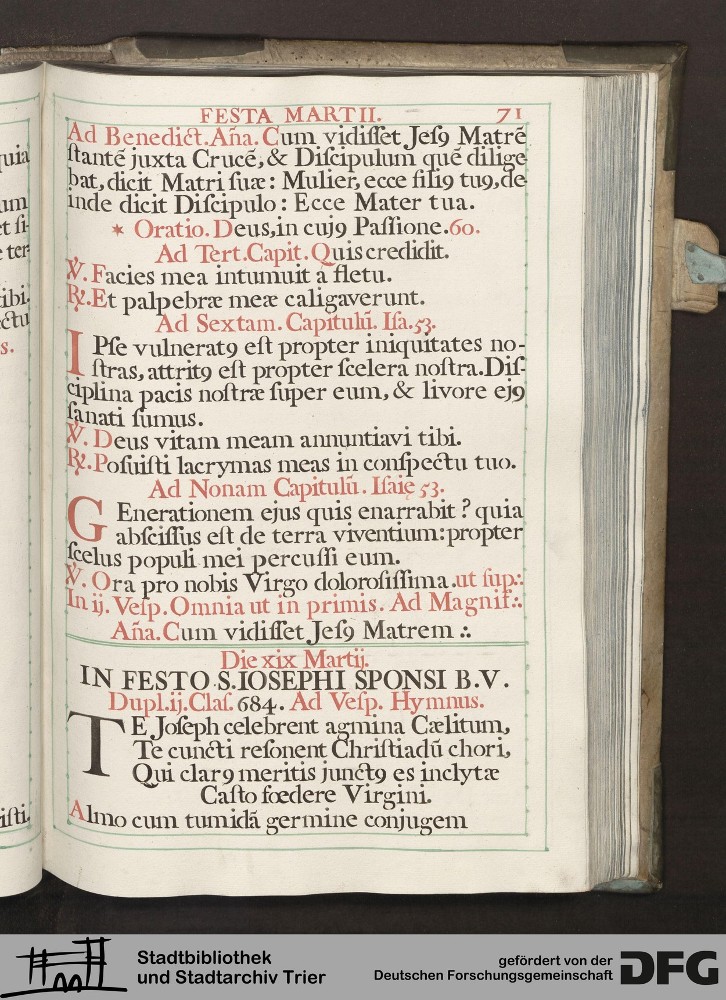 FESTA MARTII. 71
Ad Benedict. Aña. Cum vidisset Jesꝰ Matrē
stantē juxta Crucē, & Discipulum quē dilige
bat, dicit Matri suæ: Mulier, ecce filiꝰ tuꝰ, de
inde dicit Discipulo: Ecce Mater tua.
✶ Oratio. Deus, in cujꝰ Passione. 60.
Ad Tert. Capit. Quis credidit.
℣. Facies mea intumuit à fletu.
℟. Et palpebræ meæ caligaverunt.
Ad Sextam. Capitulū. Isa. 53.
IPse vulneratꝰ est propter iniquitates no-
stras, attritꝰ est propter scelera nostra. Dis-
ciplina pacis nostræ super eum, & livore ejꝰ
sanati sumus.
℣. Deus vitam meam annuntiavi tibi.
℟. Posuisti lacrymas meas in conspectu tuo.
Ad Nonam Capitulū. Isaię 53.
GEnerationem ejus quis enarrabit? quia
abscissus est de terra viventium: propter
scelus populi mei percussi eum.
℣. Ora pro nobis Virgo dolorosissima. ut sup∴
In ij. Vesp. Omnia ut in primis. Ad Magnif∴
Aña. Cum vidisset Jesꝰ Matrem ∴
Die xix Martij.
IN FESTO S. IOSEPHI SPONSI B.V.
Dupl. ij. Clas. 684. Ad Vesp. Hymnus.
TE Joseph celebrent agmina Cælitum,
Te cuncti resonent Christiadū chori,
Qui clarꝰ meritis junctꝰ es inclytæ
Casto fœdere Virgini.
Almo cum tumidā germine conjugem
quia
um
et si-
e ter-
tibi.
ectu
s.
isti.
Stadtbibliothek
und Stadtarchiv Trier
gefördert von der
Deutschen Forschungsgemeinschaft
DFG